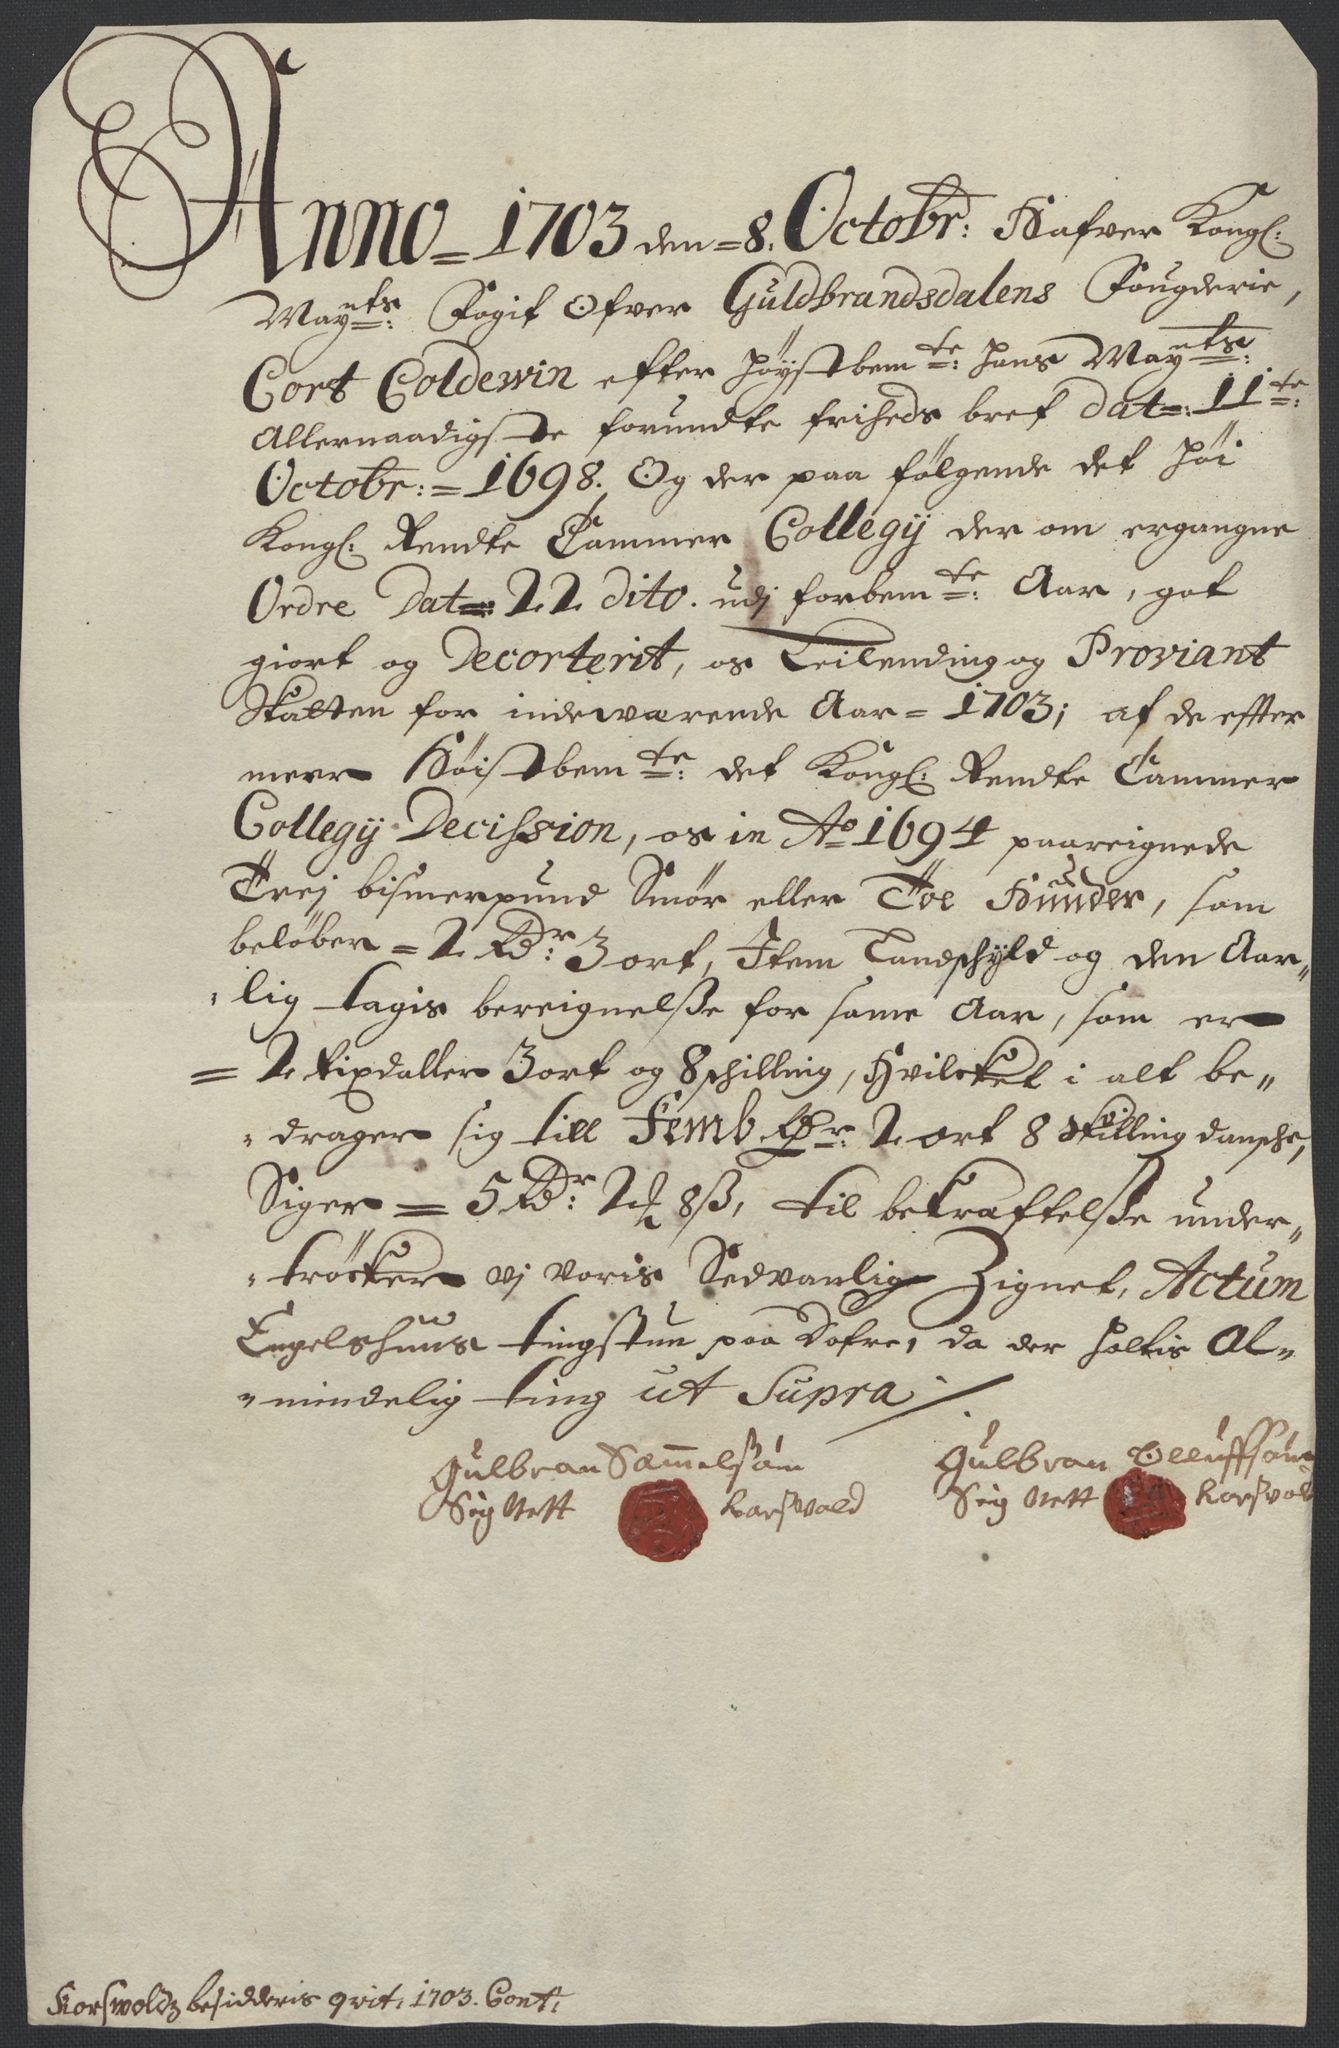 Anno = 1703 den = 8. Octobr: Hafver Kongl:
Mayts: Fogit Ofver Guldbrandsdalens Fougderie,
Cort Coldewin efter høystbemte: hans Mayts:
Allernaadigste forundte friheds bref dat=: 11te:
Octobr: = 1698. Og der paa følgende det høi
Kongl: Rendte Cammer Collegij der om ergangne
Ordre Dat=: 22 dito. udj forbemte: Aar, got
giort og Decorterit, os Leilending og Proviant
Skatten for indeværende Aar = 1703; af de effter
meer Høistbemte: det Kongl: Rendte Cammer
Collegij Decission, os in Ao 1694 paareignede
Trej bismerpund Smør eller Toe Hunder, som
beløber = 2 Rdr: 3 ort, Item Landschyld og den Aar„
„lig tagis bereignelße for same Aar, som er
= 2 rixdaller 3 ort og 8 schilling, Hvilcket i alt be„
„drager sig till Femb Rdr: 2 ort 8 Skilling dansche,
Siger = 5 Rdr: 2 ort 8 ß, til bekræftelße under„
„trøcker vj voris Sedvanlige Zignet, Actum
Engelshuus tingstue paa Dofre, da der holtis Al„
„mindelig ting ut Supra ./.
Gulbran Sammelsøn Gulbran Olluffsøn
Sig Nett Korsvold Sig Nett Korsvol
Korswolds besidderis qvit: 1703. Cont: